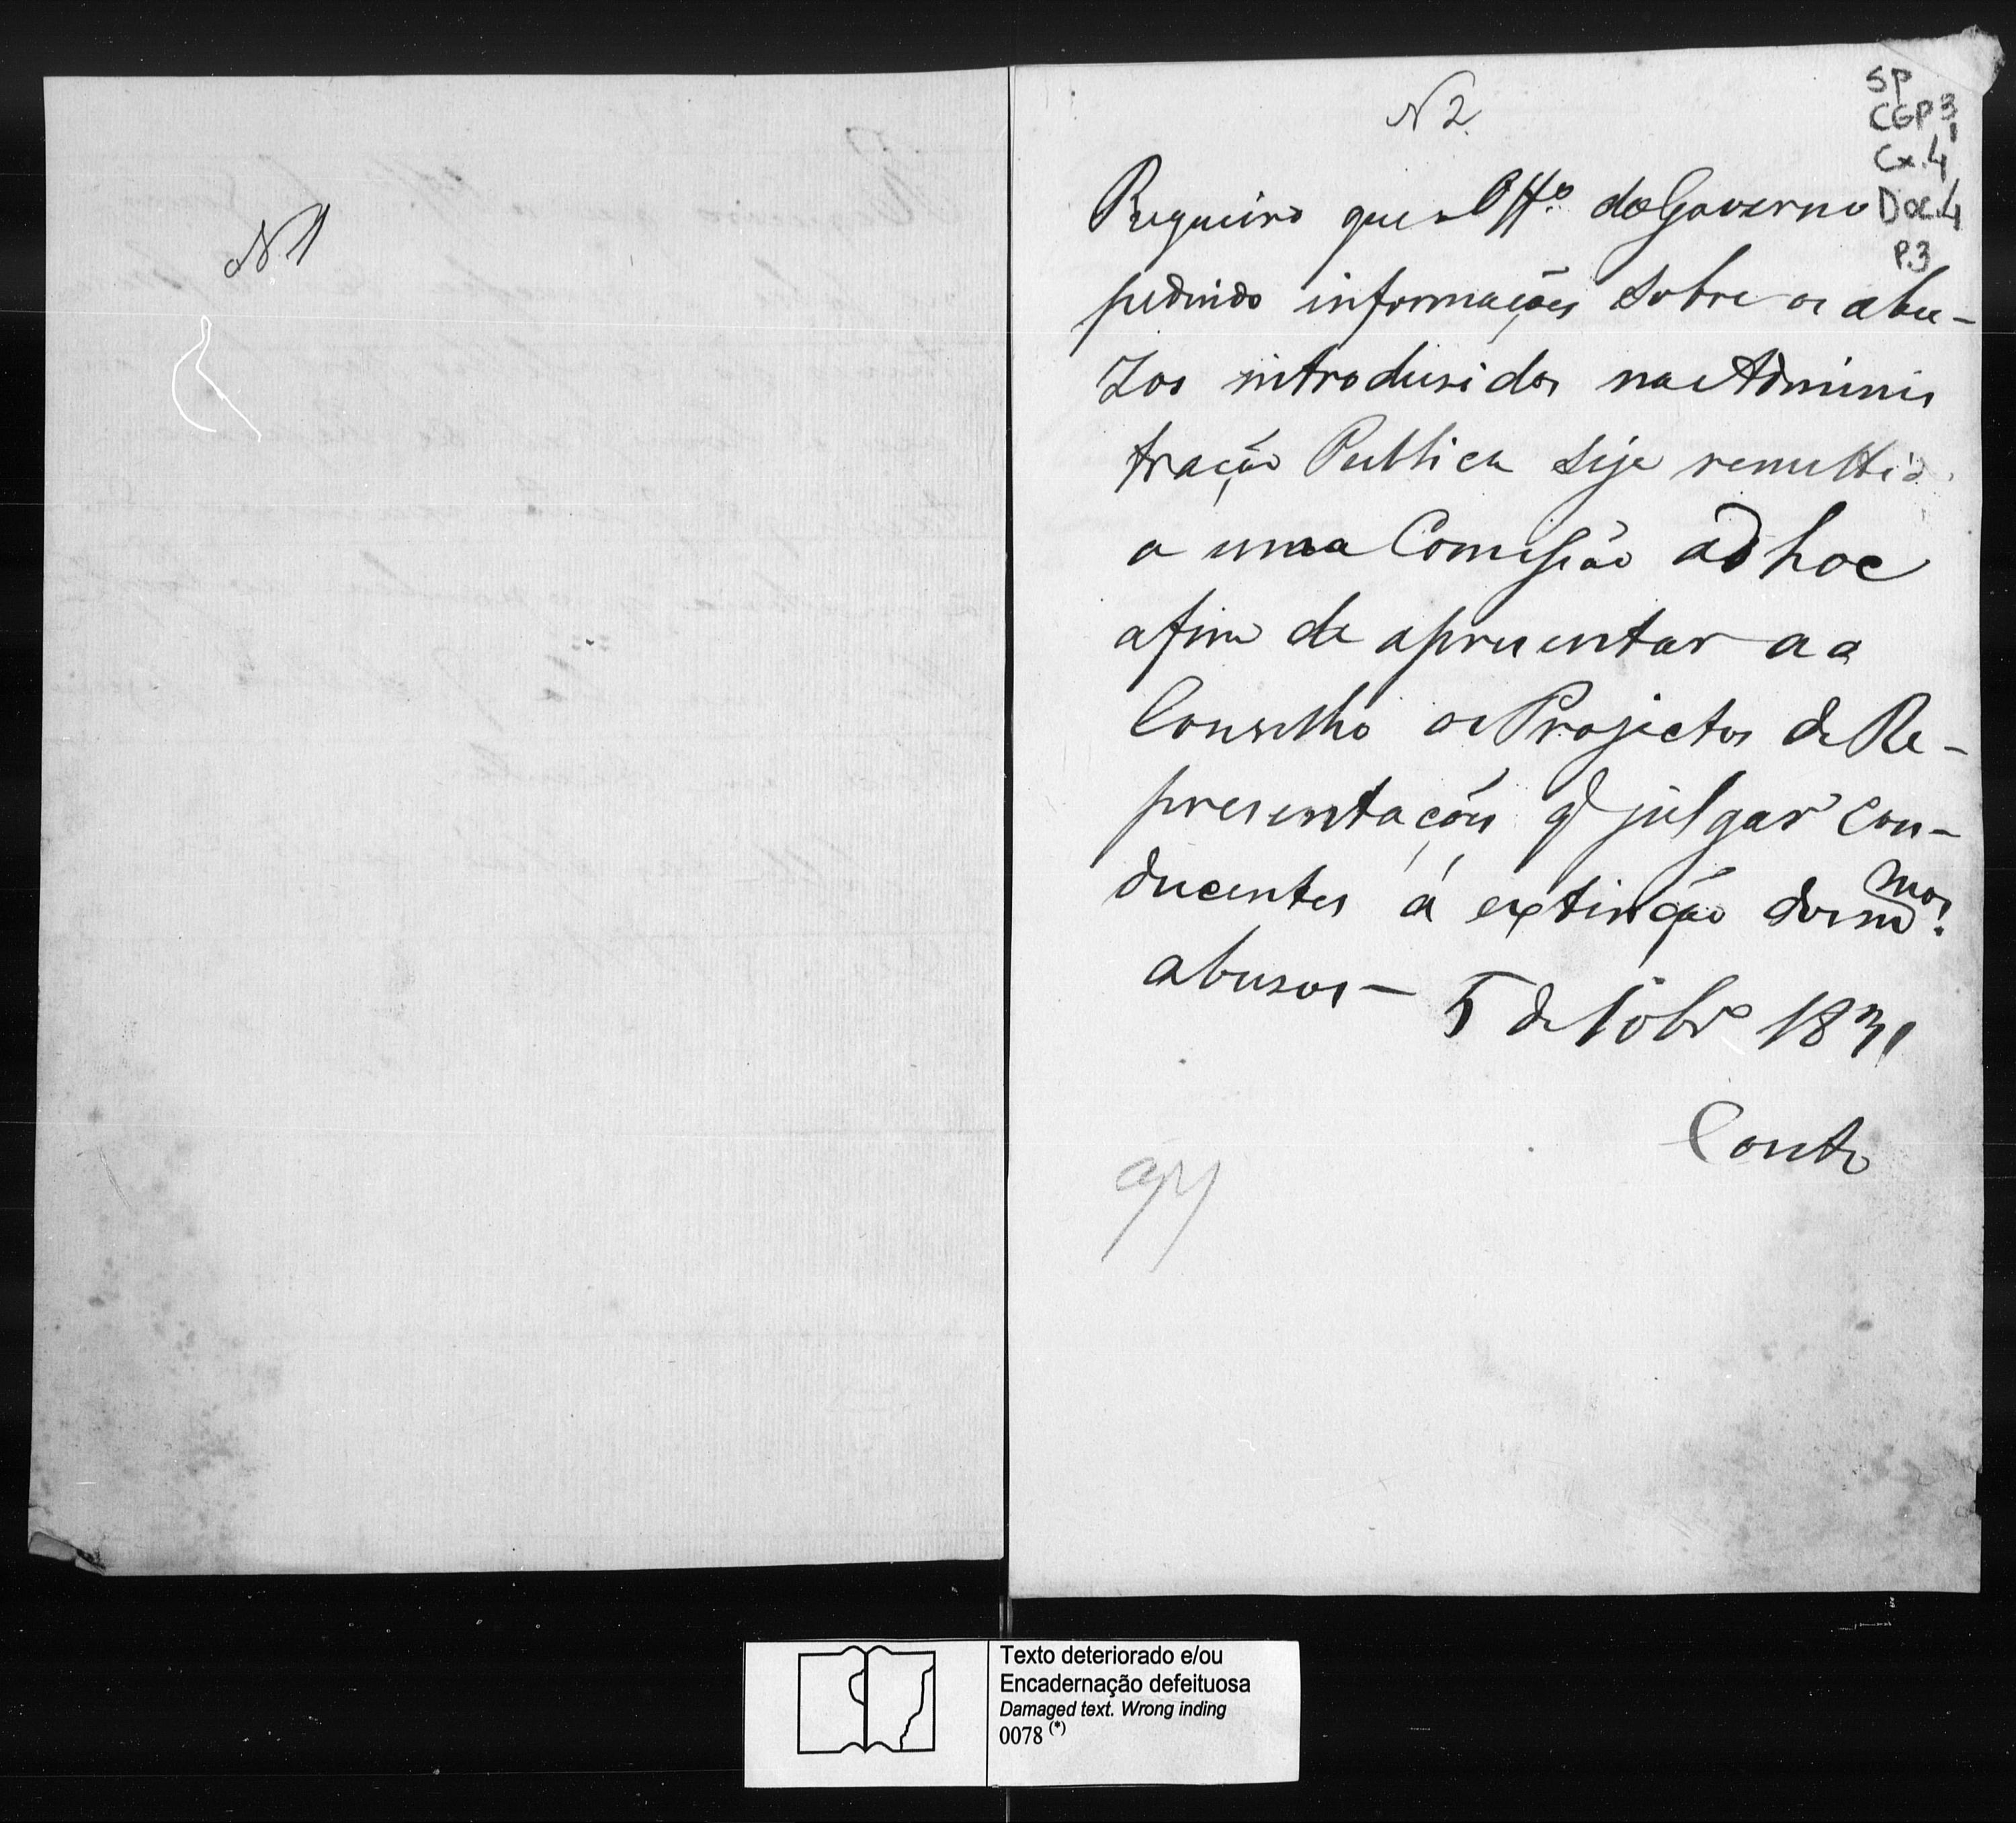 N 1
N 2
SP
CGP 3,
Cx. 4
Doc. 4
P. 3
Requeiro que o Offº do Governo
pedindo informações sobre os abu-
zos introdusidos na Adminis
tração Publica seja remettid
a uma Comissão ad hoc
afim de apresentar ao
Conselho os Projectos de Re-
presentações q julgar con-
ducentes á extinção dos m.mos
abusos – 5 de 10brº 1831
Couto
Texto deteriorado e/ou
Encadernação defeituosa
Damaged text. Wrong inding
0078 (*)